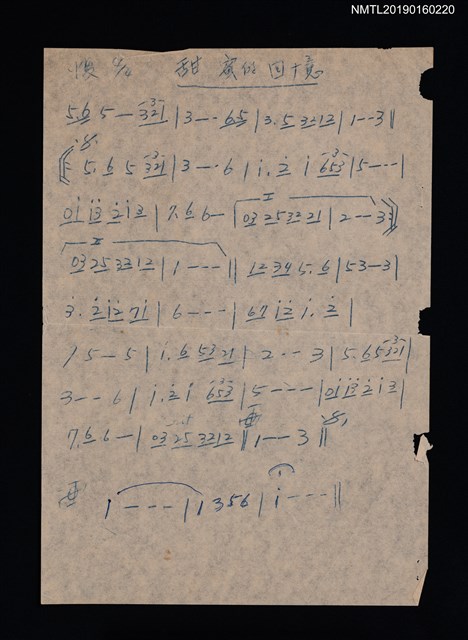 NMTL20190160220
慢 4/4 甜蜜的回憶
5.6 5 — 321 | 3 - - 65 | 3.5 3212 | 1 - - 3 ‖
5.6 5 321 | 3 - - 6 | i. 2 i 653 | 5 - - - |
0i i3 2 i 3 | 7.6 6 - | 03 25 32 21 | 2 - - 3
03 25 32 12 | 1 - - - ‖ 12 34 5.6 | 53 - 3 |
3. 2i2 7i | 6 - - - | 67 i2 i. 3 |
/ 5 - 5 | i.6 53 21 | 2 - - 3 | 5.65 321 |
3 - - 6 | i.2 i 653 | 5 - - - | 0i i3 2 i 3 |
7.6 6 - | 03 25 32 12 ‖ 1 - - 3 ‖
1 - - - | 1 3 5 6 | i - - - ‖